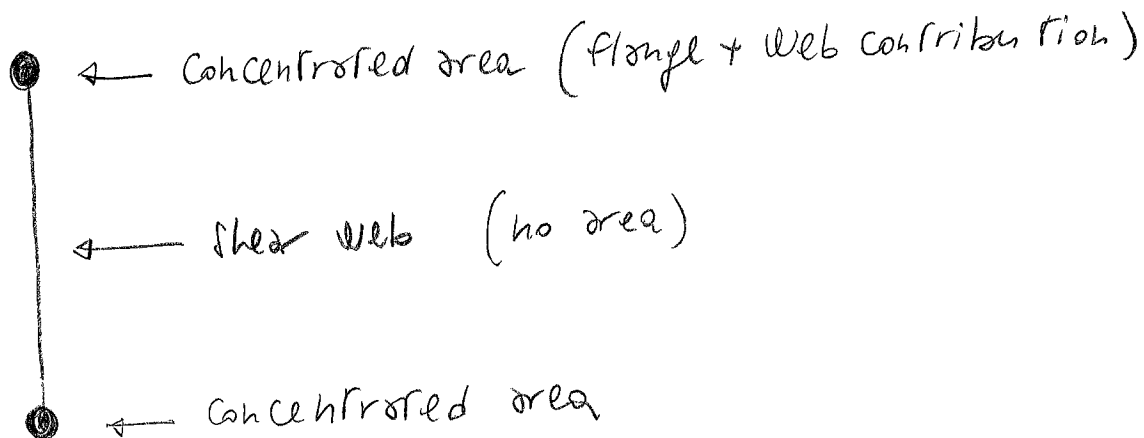 Concentrated area (flange + web contribution)
Shear web (no area)
Concentrated area